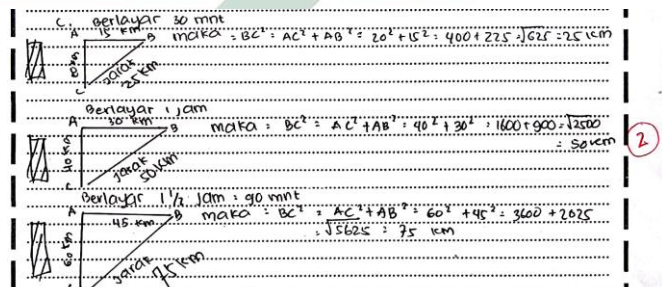 C. Berlayar 30 mnt
A 15 km B maka : BC² = AC² + AB² = 20² + 15² = 400 + 225 = √625 = 25 km
20 km
jarak 25 km
C
Berlayar 1 jam
A 30 km B maka : BC² = AC² + AB² = 40² + 30² = 1600 + 900 = √2500
= 50 km
40 km
jarak 50 km
C
2
Berlayar 1 1/2 jam = 90 mnt
A 45 km B maka : BC² = AC² + AB² = 60² + 45² = 3600 + 2025
= √5625 = 75 km
60 km
jarak 75 km